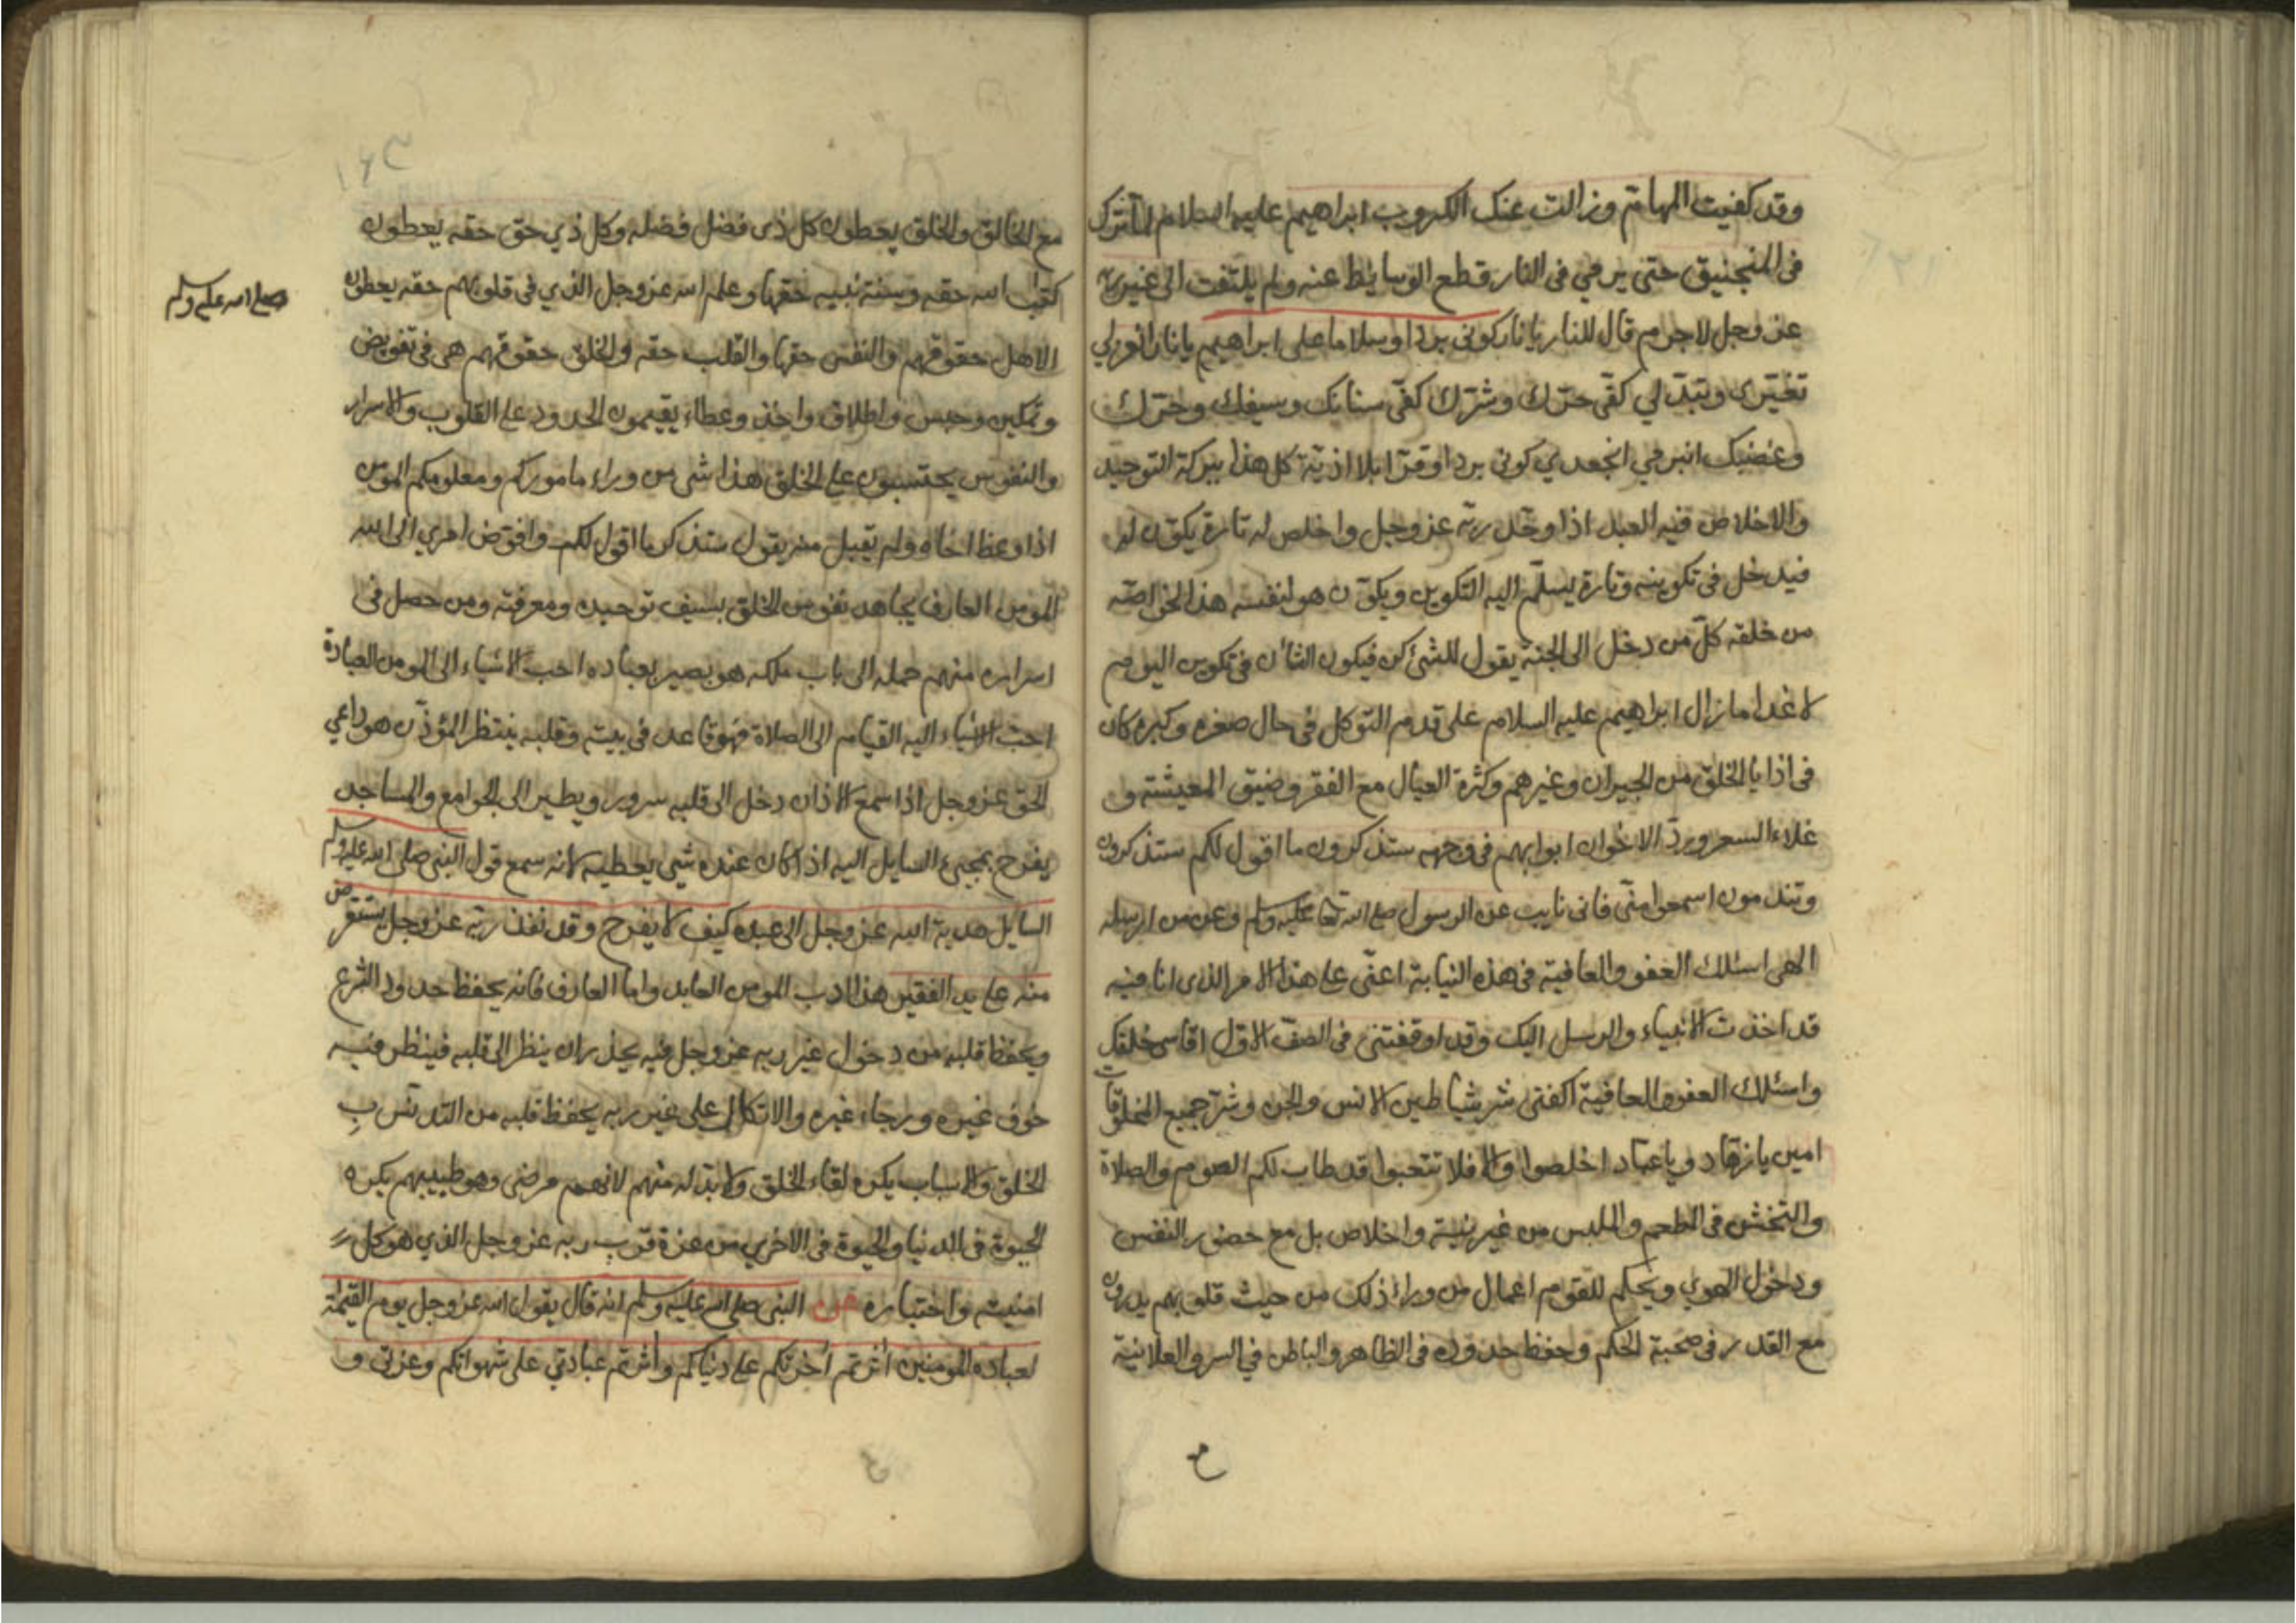 وقد كفيت المهام وزالت عنك الكروب ابراهيم عليه السلام لما ترك
فى المنجنيق حتى يرمي فى النار قطع الوسايط عنه ولم يلتفت الى غير ربه
عز وجل لاجرم قال للنار يا نار كونى بردا وسلاما على ابراهيم يا نار انعزلي
تغيّرى وتبدّلي كفّى حرّك وشرّك كفّى سنانك وسيفك وحرّك
وغضبك انبرمي انجعدي كونى بردا وقرّا بلا اذيّة كل هذا ببركة التوحيد
والاخلاص فيه العبد اذا وحّد ربّه عز وجل واخلص له تارة يكوّن له
فيدخل فى تكوينه وتارة يسلّم اليه التكوين ويكوّن هو لنفسه هذا لخواصّه
من خلقه كلّ من دخل الى الجنة يقول للشئ كن فيكون الشأن فى تكوين اليوم
لا غدا ما زال ابراهيم عليه السلام على قدم التوكل فى حال صغره وكبره كان
فى اذايا الخلق من الجيران وغيرهم وكثرة العيال مع الفقر وضيق المعيشة و
غلاء السعر وردّ الاخوان ابوابهم فى وجهه ستذكرون ما اقول لكم ستذكرون
وتندمون اسمعوا منّى فانى نايب عن الرسول صلى الله تعا عليه وسلم وعن من ارسله
الهى اسئلك العفو والعافية فى هذه النيابة اعنّى على هذا الامر الذى انا فيه
قد اخذت الانبياء والرسل اليك وقد اوقفتنى فى الصف الاول اقاسى خلقك
واسئلك العفو والعافية اكفنى شر شياطين الانس والجن وشرّ جميع المخلوقات
امين يا زهّاد ويا عبّاد اخلصوا والا فلا تتعبوا قد طاب لكم الصوم والصلاة
والتخشن فى الطعم والملبس من غير نية واخلاص بل مع حضور النفس
ودخول الهوي ويحكم للقوم اعمال من وراء ذلك من حيث قلوبهم يدرون
مع القدر فى صحبة الحكم وحفظ حدوده فى الظاهر والباطن في السر والعلانية
مع الخالق والخلق يعطون كل ذى فضل فضله وكل ذي حق حقه يعطون
كتاب الله حقه وسنة نبيه حقها وعلم الله عز وجل الذي فى قلوبهم حقه يعطون
صلى الله عليه وسلم
الاهل حقوقهم والنفس حقها والقلب حقه والخلق حقوقهم هم فى تفويض
وتمكين وحبس واطلاق واخذ وعطاء يقيمون الحدود على القلوب والاسرار
والنفوس يحتسبون على الخلق هذا شى من وراء ماموركم ومعلومكم المؤمن
اذا وعظ اخاه ولم يقبل منه يقول ستذكر ما اقول لكم وافوّض امري الى الله
المومن العارف يجاهد نفوس الخلق بسيف توحيده ومعرفته ومن حصل فى
اسراره منهم حمله الى باب ملكه هو بصير بعباده احب الاشياء الى المومن العبادة
احب الاشياء اليه القيام الى الصلاة فهو قاعد فى بيته وقلبه ينتظر المؤذّن هو داعي
الحق عز وجل اذا سمع الاذان دخل الى قلبه سرور ويطير الى الجوامع والمساجد
يفرح بمجيء السايل اليه اذا كان عنده شيى يعطيه لانه سمع قول النبى صلى الله عليه وسلم
السايل هدية الله عز وجل الى عبده كيف لا يفرح وقد نفذ ربّه عز وجل يستقرض
منه على يد الفقير هذا ادب المومن العابد واما العارف فانه يحفظ حدود الشرع
ويحفظ قلبه من دخول غير ربه عز وجل فيه يحذر ان ينظر الى قلبه فينظر فيه
خوف غيره ورجاء غيره والاتكال على غير ربه يحفظ قلبه من التدنّس بِ
الخلق والاسباب يكره لقاء الخلق ولا بدّ له منهم لانهم مرضى وهو طبيبهم يكره
الحيوة فى الدنيا والحيوة فى الاخري من عزة قرب ربه عز وجل الذي هو كل
امنيته واختياره عن النبى صلى الله عليه وسلم انه قال يقول الله عز وجل يوم القيمة
لعباده المومنين اثرتم اخرتكم على دنياكم واثرتم عبادتي على شهواتكم وعزتى و